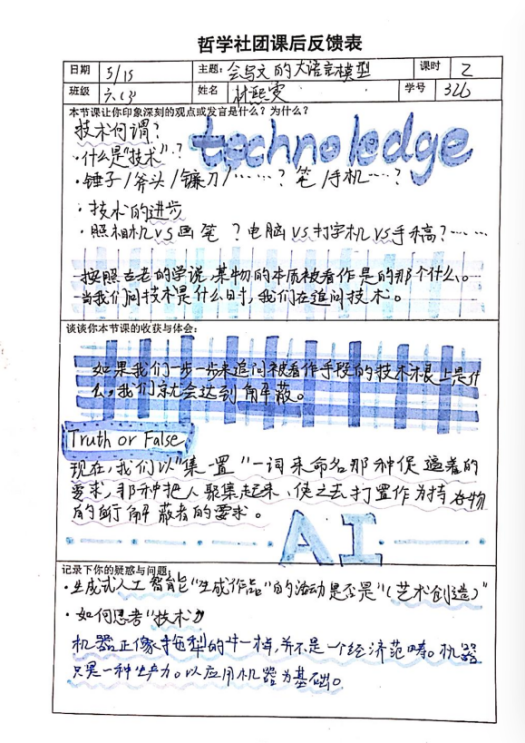 哲学社团课后反馈表
日期 5/15 主题: 会写文的大语言模型 课时 2
班级 六(3) 姓名 林熙雯 学号 326
本节课让你印象深刻的观点或发言是什么?为什么?
技术何谓?
technoledge
·什么是"技术"?
·锤子/斧头/镰刀/……? 笔/手机…?
·技术的进步
·照相机VS画笔?电脑VS打字机VS手稿?……
按照古老的学说,某物的本质被看作是的那个什么。
当我们问技术是什么时,我们在追问技术。
谈谈你本节课的收获与体会:
如果我们一步一步来追问被看作手段的技术根上是什
么,我们就会达到解蔽。
Truth or False
现在,我们以"集-置"一词来命名那种促逼着的
要求,那种把人聚集起来、使之去打置作为持存物
的自行解蔽者的要求。
AI
记录下你的疑惑与问题
·生成式人工智能"生成作品"的活动是否是"(艺术创造)"
·如何思考"技术"
机器正像拖犁的牛一样,并不是一个经济范畴。机器
只是一种生产力。以应用机器为基础。